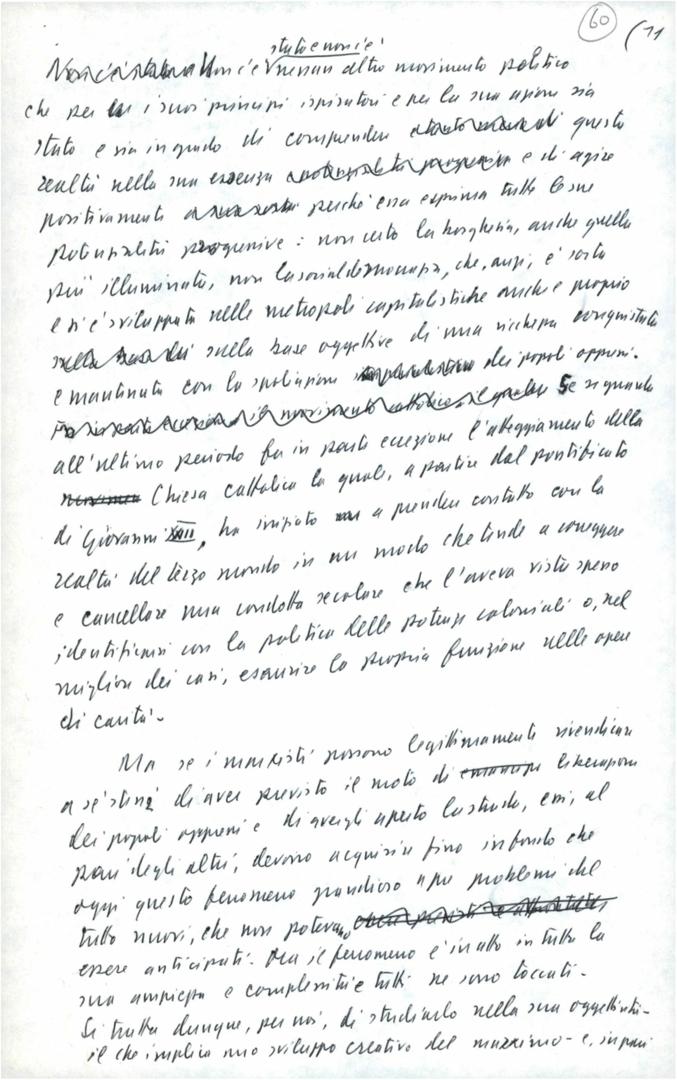 60 (11
stato e non c'è
Non c'è nessun altro movimento politico
che per i suoi principi ispiratori e per la sua azione sia
stato e sia in grado di comprendere questa
realtà nella sua essenza e di agire
positivamente perché essa esprima tutte le sue
potenzialità progressive: non certo la borghesia, anche quella
più illuminata, non la socialdemocrazia, che, anzi, è sorta
e si è sviluppata nelle metropoli capitalistiche anche e proprio
sulla base oggettiva di una ricchezza conquistata
e mantenuta con la spoliazione dei popoli oppressi.
Se si guarda
all'ultimo periodo fa in parte eccezione l'atteggiamento della
Chiesa cattolica la quale, a partire dal pontificato
di Giovanni XXIII, ha iniziato a prendere contatto con la
realtà del terzo mondo in un modo che tende a correggere
e cancellare una condotta secolare che l'aveva vista spesso
identificarsi con la politica delle potenze coloniali o, nel
migliore dei casi, esaurire la propria funzione nelle opere
di carità.
Ma se i marxisti possono legittimamente rivendicare
a sé stessi di aver previsto il moto di liberazione
dei popoli oppressi e di avergli aperto la strada, essi, al
pari degli altri, devono acquisire fino in fondo che
oggi questo fenomeno grandioso apre problemi del
tutto nuovi, che non potevano
essere anticipati. Ma il fenomeno è in atto in tutta la
sua ampiezza e complessità e tutti ne sono toccati.
Si tratta dunque, per noi, di studiarlo nella sua oggettività -
il che implica uno sviluppo creativo del marxismo - e, in pari